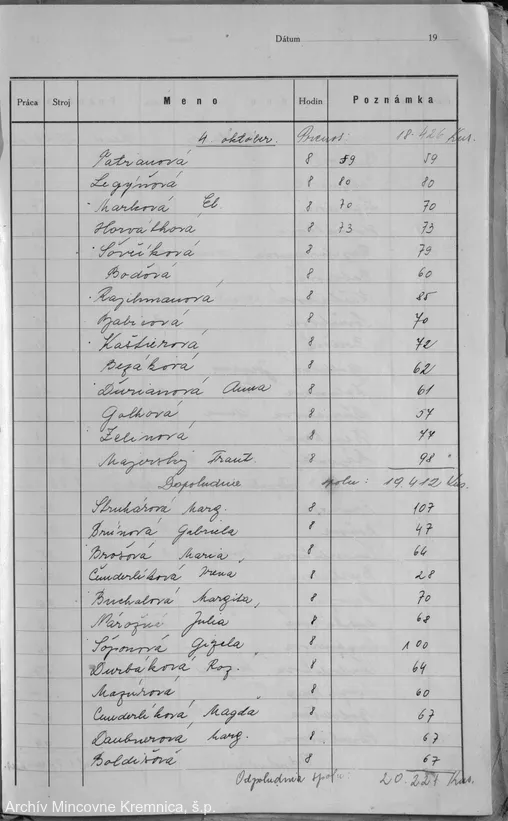 Dátum 19
Práca Stroj Meno Hodin Poznámka
4. október. 18.426 Kus.
Tatrianová 8 59 59
Legýňová 8 80 80
Marková El. 8 70 70
Horvátková 8 73 73
Sovčíková 8 79
Bodová 8 60
Rajchmanová 8 85
Babicová 8 70
Kaštierová 8 72
Bezáková 8 62
Ďurianová Anna 8 61
Golhová 8 54
Zelinová 8 77
Mazerský Frant. 8 98
Dopoludnie spolu: 19.412 Kus.
Struhárová Marg. 8 107
Drúnová Gabriela 8 47
Brošová Maria 8 64
Čunderlíková Irena 8 28
Buchalová Margita 8 70
Nárožná Julia 8 68
Šóponová Gizela 8 100
Ďurbáková Roz. 8 64
Mazúrová 8 60
Čunderlíková Magda 8 67
Daubnerová Marg. 8 67
Boldišová 8 67
Odpoludnia spolu: 20.221 Kus.
Archív Mincovne Kremnica, š.p.